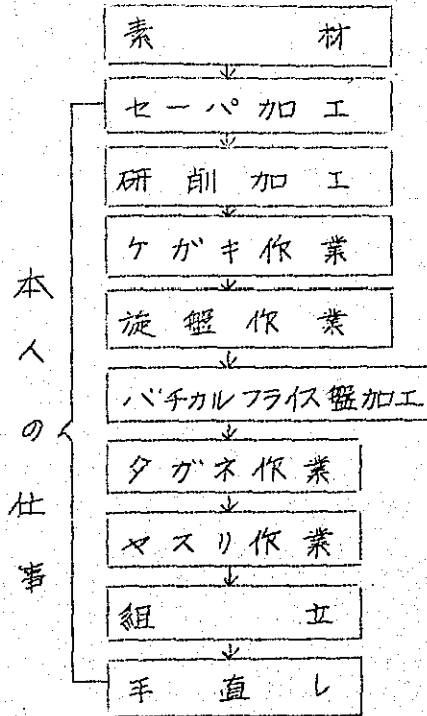 素材
セーパ加工
研削加工
ケガキ作業
旋盤作業
バチカルフライス盤加工
タガネ作業
ヤスリ作業
組立
手直し
本人の仕事